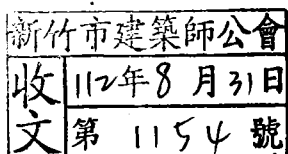 新竹市建築師公會
收文
112年8月31日
第 1154 號